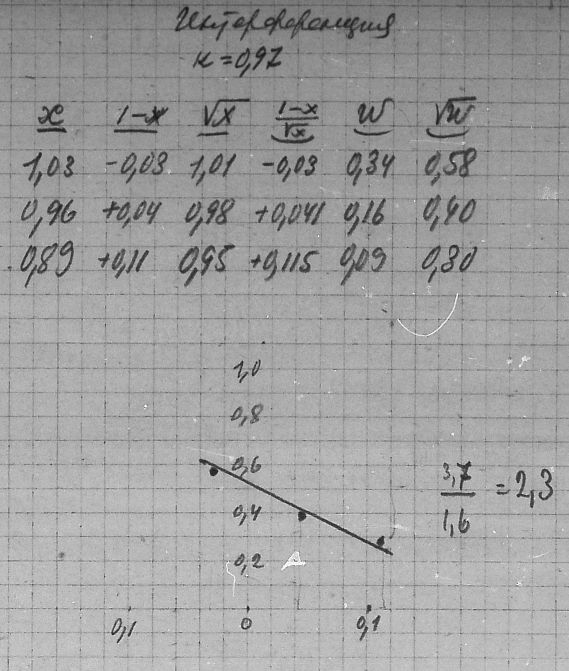 к = 0,97
x 1-x √x (1-x)/√x W √W
1,03 -0,03 1,01 -0,03 0,34 0,58
0,96 +0,04 0,98 +0,041 0,16 0,40
0,89 +0,11 0,95 +0,115 0,09 0,30
1,0
0,8
0,6
0,4
0,2
3,7/1,6 = 2,3
0,1 0 0,1